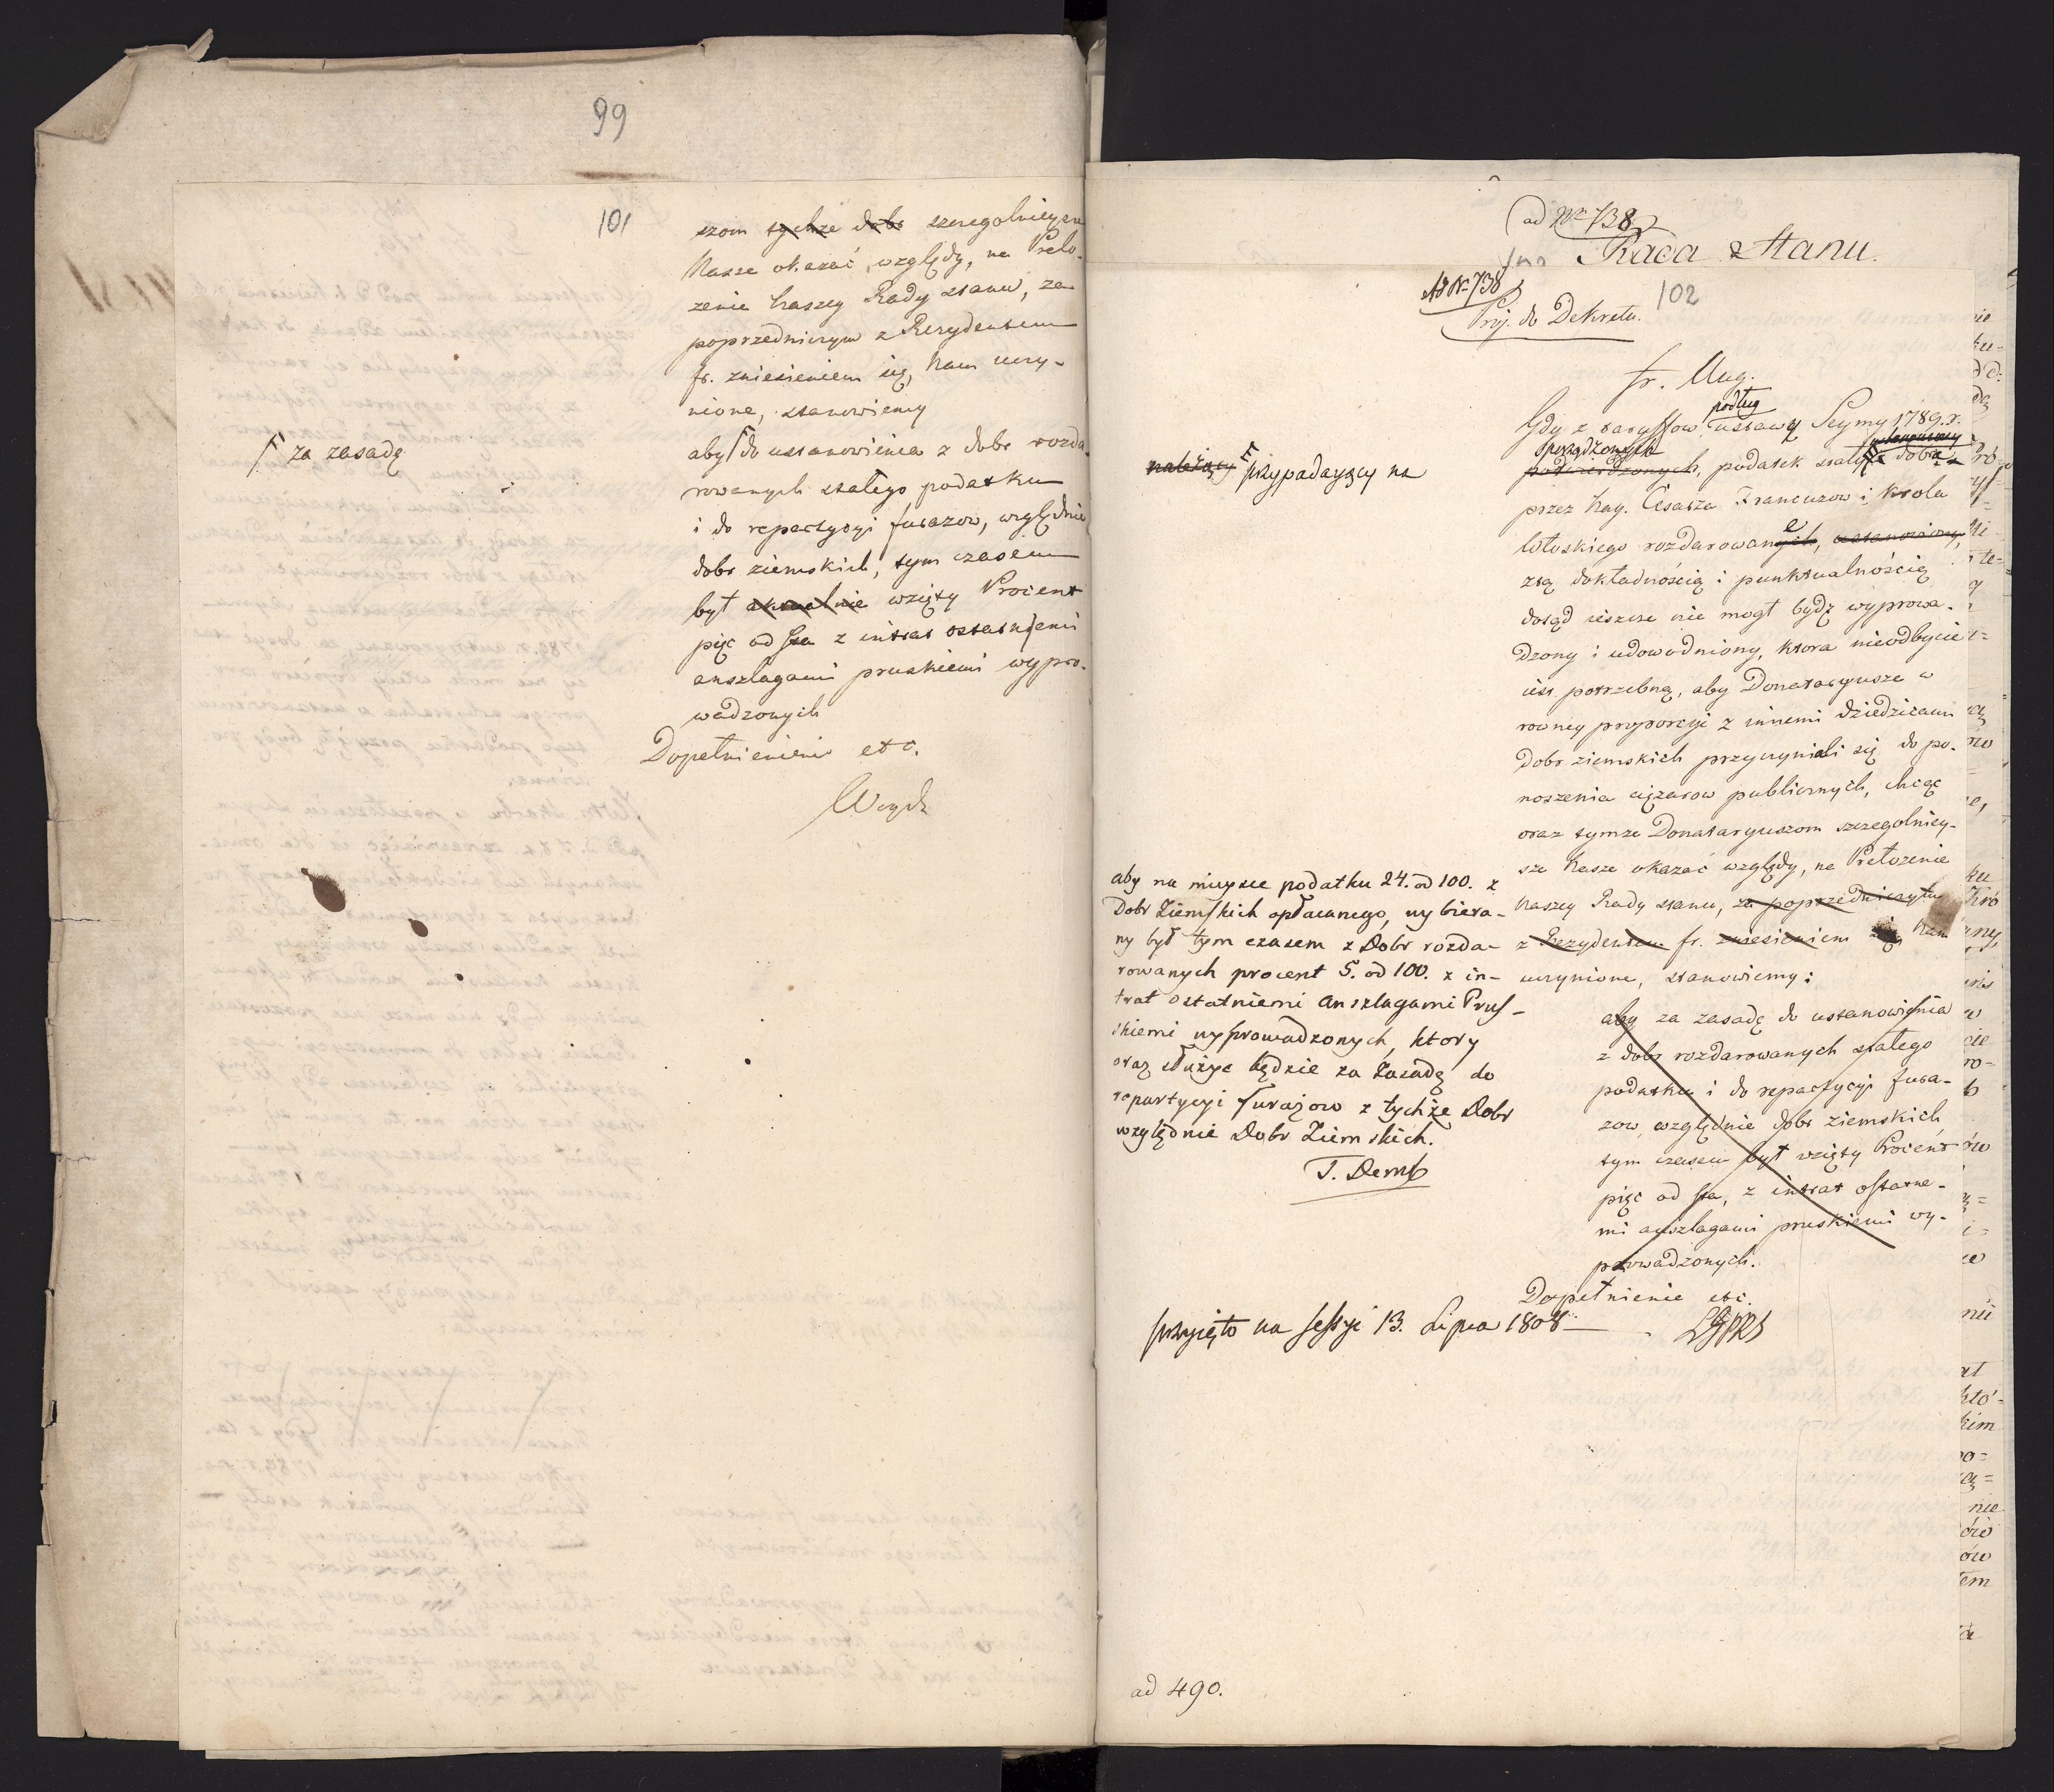 99
101
szom tychże dobr szczegolnieysze
Nasze okazać względy, na Przeło-
zenie Naszey Rady stanu, za
poprzedniczym z Rezydentem
fr. zniesieniem się, Nam uczy-
nione, stanowiemy
aby do ustanowienia z dobr rozda-
rowanych stałego podatku
i do repartycyi furazow, względnie
dobr ziemskich, tym czasem
był aktualnie wzięty Procent
pięć od sta z intrat ostatniemi
anszlagami pruskiemi wypro-
wadzonych
Dopełnienie etc.
Γ za zasadę
ad Nr 738
Rada Stanu.
Ad Nr 738
102
Proj. do Dekretu.
fr. Aug.
podług
Gdy z taryffow ustawy Seymu 1789. r.
sporządzonych ustanowiony
potwierdzonych, podatek stały z dobr
przez Nay. Cesarza Francuzow i Krola
Włoskiego rozdarowanych, ustanowiony,
z tą dokładnością i punktualnością
dotąd ieszcze nie mogł bydź wyprowa-
dzony i udowodniony, ktora nieodbycie
iest potrzebną, aby Donataryusze w
rowney proporcyi z innemi dziedzicami
dobr ziemskich przyczyniali się do po-
noszenia ciężarow publicznych, chcąc
oraz tymze Donataryuszom szczegolniey-
sze Nasze okazać względy, na Przełozenie
Naszey Rady stanu, za poprzedniczym
z Rezydentem fr. zniesieniem się Nam
uczynione, stanowiemy:
aby za zasadę do ustanowienia
z dobr rozdarowanych stałego
podatku i do repartycyi fura-
zow, względnie dobr ziemskich
tym czasem był wzięty Procent
pięć od sta, z intrat ostatnie-
mi anszlagami pruskiemi wy-
prowadzonych.
Dopełnienie etc.
należący przypadaiący na
aby na mieysce podatku 24. od 100. z
Dobr Ziemskich opłacanego, wybiera-
ny był tym czasem z Dobr rozda-
rowanych procent 5. od 100. z in-
trat ostatniemi anszlagami Prus-
skiemi wyprowadzonych, ktory
oraz służyć będzie za Zasadę do
repartycyi furażow z tychże Dobr
względnie Dobr Ziemskich.
T. Demb
przyięto na sessyi 13. Lipca 1808
ad 490.